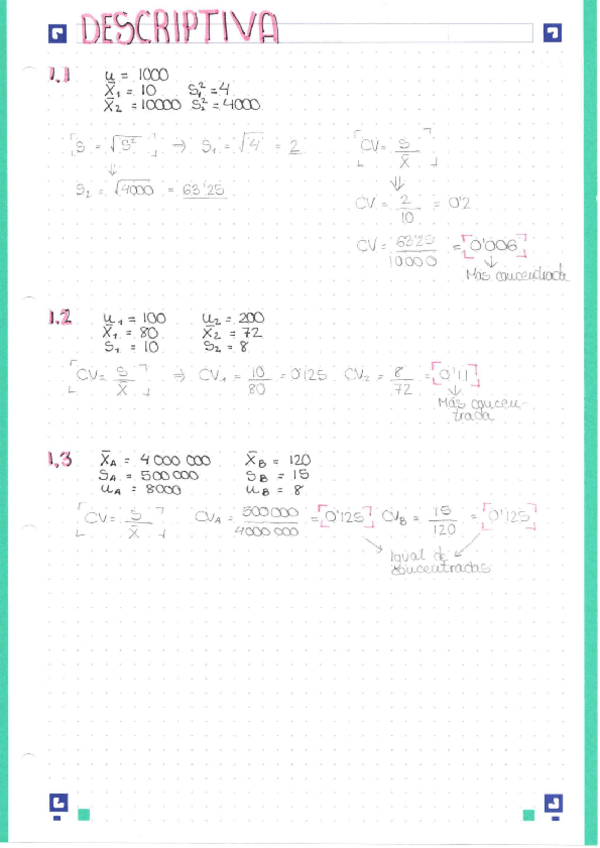 DESCRIPTIVA
1.1 u = 1000
X̄₁ = 10 S₁² = 4
X̄₂ = 10000 S₂² = 4000
[S = √S²] → S₁ = √4 = 2
⇓
S₂ = √4000 = 63'25
[CV = S / X̄]
⇓
CV = 2 / 10 = 0'2
CV = 63'25 / 10000 = [0'006]
↓
Más concentrada
1.2 u₁ = 100 u₂ = 200
X̄₁ = 80 X̄₂ = 72
S₁ = 10 S₂ = 8
[CV = S / X̄] ⇒ CV₁ = 10 / 80 = 0'125 CV₂ = 8 / 72 = [0'11]
↓
Más concen-
trada
1.3 X̄A = 4 000 000 X̄B = 120
SA = 500 000 SB = 15
uA = 8000 uB = 8
[CV = S / X̄] CVA = 500 000 / 4000 000 = [0'125] CVB = 15 / 120 = [0'125]
Igual de
concentradas